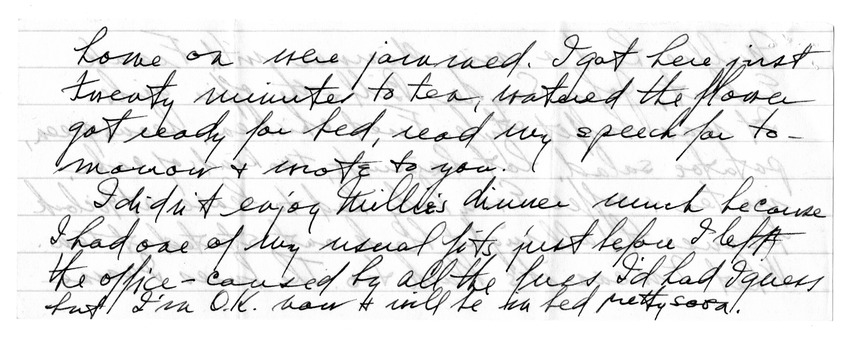 home on were jammed. I got here just
twenty minutes to ten, watered the flower
got ready for bed, read my speech for to-
morrow & wrote to you.
I didn't enjoy Millie's dinner much because
I had one of my usual fits just before I left
the office - caused by all the fuss I'd had I guess
but I'm O.K. now & will be in bed pretty soon.